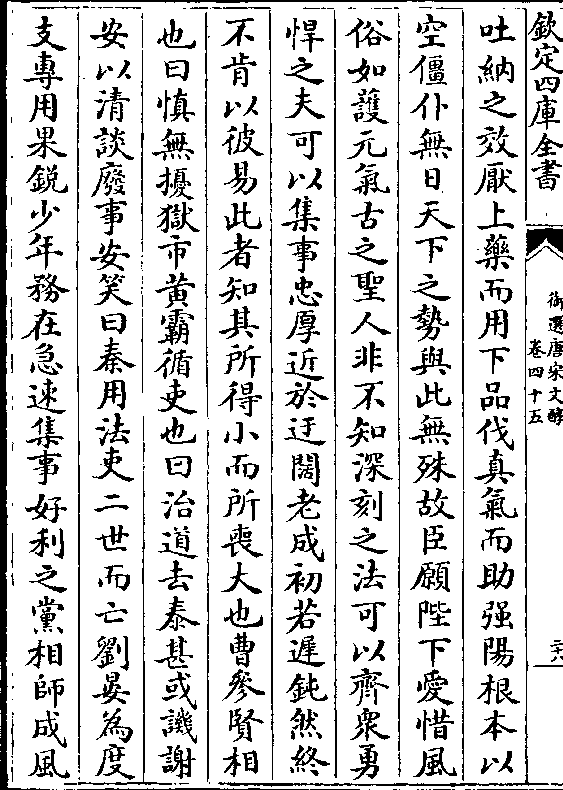 欽定四庫全書
御選唐宋文醇
卷四十五
二十八
吐納之效厭上藥而用下品伐真氣而助强陽根本以
空僵仆無日天下之勢與此無殊故臣願陛下愛惜風
俗如護元氣古之聖人非不知深刻之法可以齊衆勇
悍之夫可以集事忠厚近於迂闊老成初若遲鈍然終
不肯以彼易此者知其所得小而所喪大也曹參賢相
也曰慎無擾獄市黄霸循吏也曰治道去泰甚或譏謝
安以清談廢事安笑曰秦用法吏二世而亡劉晏為度
支專用果鋭少年務在急速集事好利之黨相師成風